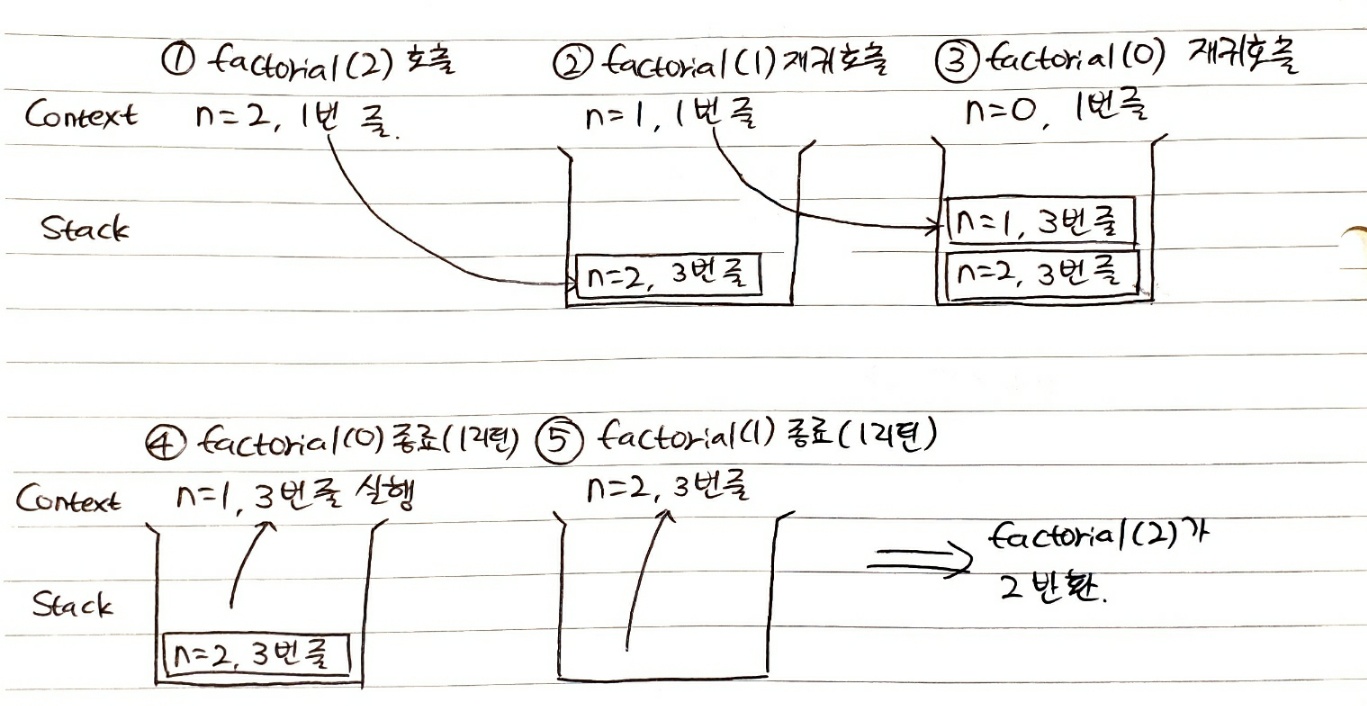 ① factorial(2) 호출 ② factorial(1) 재귀호출 ③ factorial(0) 재귀호출
Context n=2, 1번 줄. n=1, 1번 줄 n=0, 1번줄
Stack
n=1, 3번 줄
n=2, 3번 줄 n=2, 3번 줄
④ factorial(0) 종료(1리턴) ⑤ factorial(1) 종료(1리턴)
Context n=1, 3번줄 실행 n=2, 3번줄
factorial(2)가
Stack 2 반환.
n=2, 3번 줄